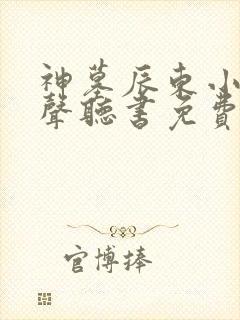 神墓辰东小
聲聽書免費
官博捧